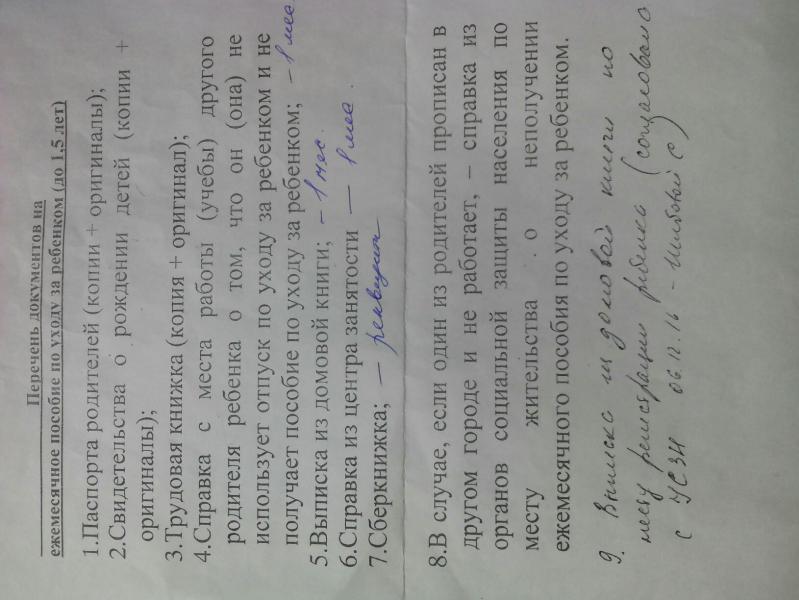 Перечень документов на
ежемесячное пособие по уходу за ребенком (до 1,5 лет)
1.Паспорта родителей (копии + оригиналы);
2.Свидетельства о рождении детей (копии +
оригиналы);
3.Трудовая книжка (копия + оригинал);
4.Справка с места работы (учебы) другого
родителя ребенка о том, что он (она) не
использует отпуск по уходу за ребенком и не
получает пособие по уходу за ребенком; – 1 мес
5.Выписка из домовой книги; – 1 мес.
6.Справка из центра занятости — 1 мес.
7.Сберкнижка; – реквизит
8.В случае, если один из родителей прописан в
другом городе и не работает, – справка из
органов социальной защиты населения по
месту жительства . о неполучении
ежемесячного пособия по уходу за ребенком.
9. Выписка из домовой книги по
месту регистрации ребенка (согласовано
с УСЗН 06.12.16 -